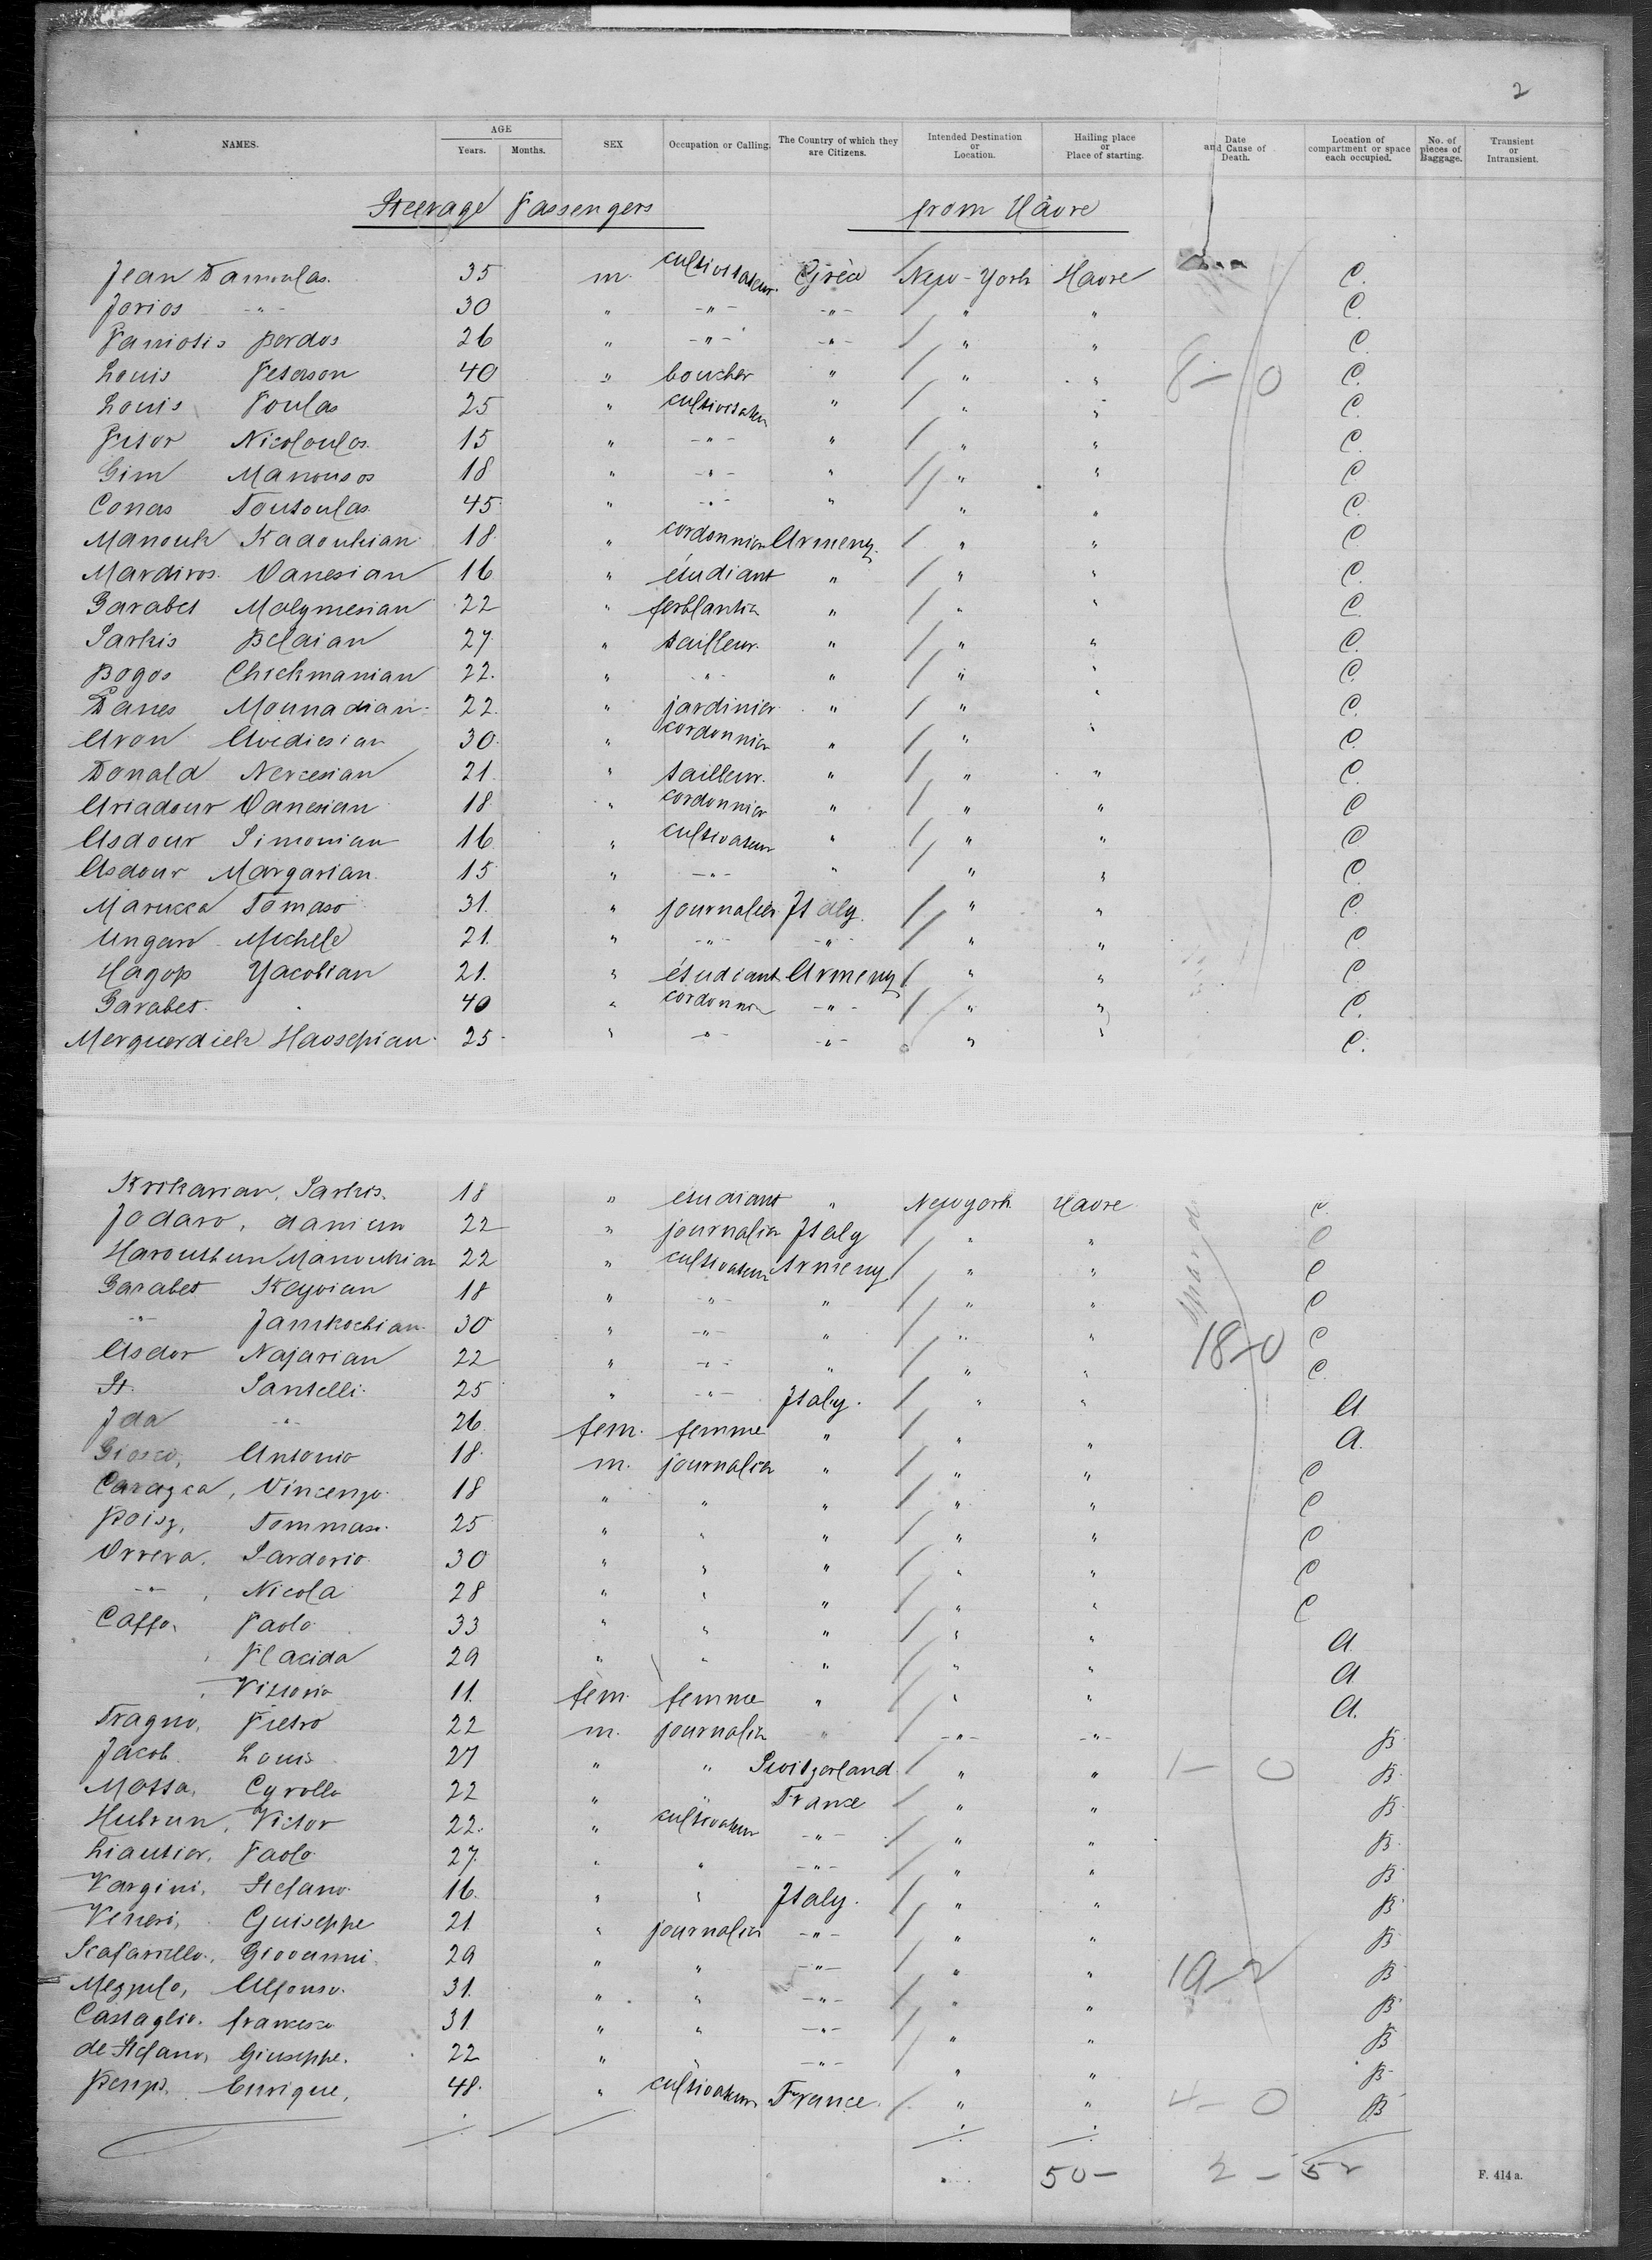 2
NAMES. AGE Years. Months. SEX Occupation or Calling. The Country of which they are Citizens. Intended Destination or Location. Hailing place or Place of starting. Date and Cause of Death. Location of compartment or space each occupied. No. of pieces of Baggage. Transient or Intransient.
Steerage Passengers from Hâvre
Jean Damoulas. 35 m. cultivateur. Grèce New-York Havre C.
Jorios -"- 30 " -"- -"- " " C.
Paniotis Bordos 26 " -"- -"- " " C.
Louis Peterson 40 " boucher " " " 8-0 C.
Louis Poulas 25 " cultivateur " " " C.
Peter Nicoloulos. 15 " -"- " " " C.
Gim Manousos 18 " -"- " " " C
Conas Toutoulas. 45 " -"- " " " C.
Manouk Kadoukian 18 " cordonnier Armeny. " " C
Mardiros. Vanesian 16 " étudiant " " " C.
Garabet Molymesian 22 " ferblantier " " " C.
Sarkis Belaian 27 " tailleur. " " " C.
Bogos Chickmanian 22. " -"- " " " C.
Danes Mounadian 22. " jardinier " " " C.
Avon Avediesian 30 " cordonnier " " " C.
Donald Nercesian 21. " tailleur. " " " C.
Ariadour Vanesian 18 " cordonnier " " " C
Asdour Simonian 16 " cultivateur " " " C
Asdour Margarian. 15 " -"- " " " C.
Marucca Tomaso 31. " journalier Italy. " " C.
Ungaro Michele 21. " -"- -"- " " C.
Hagop Yacobian 21. " étudiant Armeny " " C
Garabet " 40 " cordonnier -"- " " C.
Merguerdich Havsepian 25 " -"- -"- " " C.
Krikarian, Sarkis. 18 " étudiant " New york Havre C.
Jodaro, 22 " journalier Italy " " C
Haroutiun Manoukian 22 " cultivateur Armeny " " C
Garabet Keyvian 18 " -"- " " " C
-"- Jamkochian 30 " -"- " " " 18-0 C
Asdor Najarian 22 " -"- " " " C.
St. Santelli 25 " -"- Italy. " " A
Ida -"- 26 fem. femme " " " A.
Giosco, Antonio 18. m. journalier " " " C
Caragca, Vincenzo 18 " " " " " C
Boisz, Tommaso 25 " " " " " C
Orrera. Sardorio 30 " " " " " C
-"-, Nicola 28 " " " " " C
Caffo, Paolo 33 " " " " " A
" Placida 29 " " " " " A
" Vittoria 11. fem. femme " " " A.
Fragno, Pietro 22 m. journalier " -"- -"- B
Jacob Louis 27 " " Switzerland " " 1-0 B
Massa, Cyrollo 22 " " France " " B
Hubrun, Victor 22. " cultivateur -"- " " B
Liautier, Paolo 27. " " -"- " " B
Vargini, Stefano 16. " " Italy. " " B
Veneri, Guiseppe 21 " journalier -"- " " B
Scafarrello, Giovanni 29 " " -"- " " 19-2 B
Mezzulo, Alfonso. 31. " " -"- " " B
Castaglio. francesco 31 " " -"- " " B
de Stefano, Giuseppe. 22 " " -"- " " B
Enrique, 48. " cultivateur France. " " 4-0 B
50- 2-52
F. 414 a.